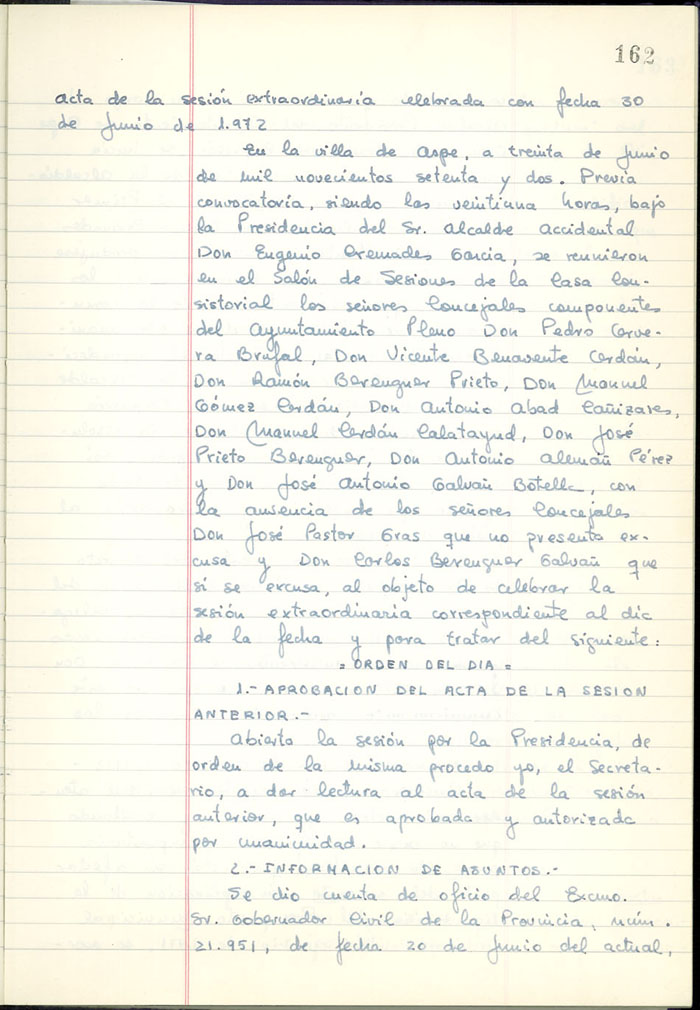 162
acta de la sesión extraordinaria celebrada con fecha 30
de Junio de 1.972
En la villa de Aspe, a treinta de Junio
de mil novecientos setenta y dos. Previa
convocatoria, siendo las veintiuna horas, bajo
la Presidencia del Sr. Alcalde Accidental
Don Eugenio Cremades Garcia, se reunieron
en el Salón de Sesiones de la Casa Con-
sistorial los señores Concejales componentes
del Ayuntamiento Pleno Don Pedro Cerve-
ra Brufal, Don Vicente Benavente Cerdán,
Don Ramón Berenguer Prieto, Don Manuel
Gómez Cerdán, Don Antonio Abad Cañizares,
Don Manuel Cerdán Calatayud, Don José
Prieto Berenguer, Don Antonio Alemañ Pérez
y Don José Antonio Galvañ Botella, con
la ausencia de los señores Concejales
Don José Pastor Gras que no presenta ex-
cusa y Don Carlos Berenguer Galvañ que
si se excusa, al objeto de celebrar la
sesión extraordinaria correspondiente al dia
de la fecha y para tratar del siguiente:
= ORDEN DEL DIA =
1.- APROBACION DEL ACTA DE LA SESION
ANTERIOR.-
Abierta la sesión por la Presidencia, de
orden de la misma procedo yo, el Secreta-
rio, a dar lectura al acta de la sesión
anterior, que es aprobada y autorizada
por unanimidad.
2.- INFORMACION DE ASUNTOS.-
Se dio cuenta de oficio del Excmo.
Sr. Gobernador Civil de la Provincia, núm.
21.951, de fecha 20 de Junio del actual,